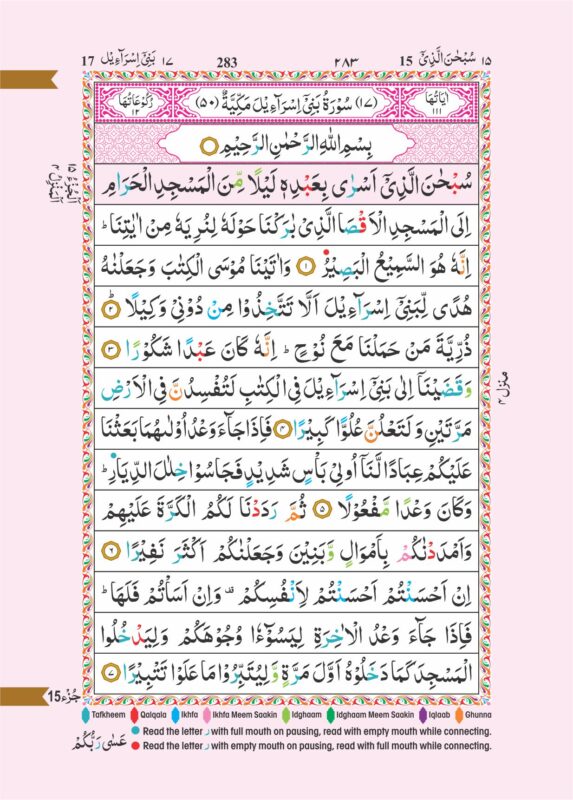 17 بَنِیْٓ اِسْرَآءِیْل ١٧ 283 ٢٨٣ 15 سُبْحٰنَ الَّذِیْٓ ١٥
رُكُوْعَاتُهَا ١٢ (١٧) سُوْرَةُ بَنِیْٓ اِسْرَآءِیْلَ مَكِّیَّةٌ (٥٠) اٰیَاتُهَا ١١١
بِسْمِ اللّٰهِ الرَّحْمٰنِ الرَّحِیْمِ
سُبْحٰنَ الَّذِیْٓ اَسْرٰی بِعَبْدِهٖ لَیْلًا مِّنَ الْمَسْجِدِ الْحَرَامِ
اِلَی الْمَسْجِدِ الْاَقْصَا الَّذِیْ بٰرَكْنَا حَوْلَهٗ لِنُرِیَهٗ مِنْ اٰیٰتِنَا ؕ
اِنَّهٗ هُوَ السَّمِیْعُ الْبَصِیْرُ ١ وَاٰتَیْنَا مُوْسَی الْكِتٰبَ وَجَعَلْنٰهُ
هُدًی لِّبَنِیْٓ اِسْرَآءِیْلَ اَلَّا تَتَّخِذُوْا مِنْ دُوْنِیْ وَكِیْلًا ٢
ذُرِّیَّةَ مَنْ حَمَلْنَا مَعَ نُوْحٍ ؕ اِنَّهٗ كَانَ عَبْدًا شَكُوْرًا ٣
وَقَضَیْنَاۤ اِلٰی بَنِیْٓ اِسْرَآءِیْلَ فِی الْكِتٰبِ لَتُفْسِدُنَّ فِی الْاَرْضِ
مَرَّتَیْنِ وَلَتَعْلُنَّ عُلُوًّا كَبِیْرًا ٤ فَاِذَا جَآءَ وَعْدُ اُوْلٰىهُمَا بَعَثْنَا
عَلَیْكُمْ عِبَادًا لَّنَاۤ اُولِیْ بَاْسٍ شَدِیْدٍ فَجَاسُوْا خِلٰلَ الدِّیَارِ ؕ
وَكَانَ وَعْدًا مَّفْعُوْلًا ٥ ثُمَّ رَدَدْنَا لَكُمُ الْكَرَّةَ عَلَیْهِمْ
وَاَمْدَدْنٰكُمْ بِاَمْوَالٍ وَّبَنِیْنَ وَجَعَلْنٰكُمْ اَكْثَرَ نَفِیْرًا ٦
اِنْ اَحْسَنْتُمْ اَحْسَنْتُمْ لِاَنْفُسِكُمْ ۫ وَاِنْ اَسَاْتُمْ فَلَهَا ؕ
فَاِذَا جَآءَ وَعْدُ الْاٰخِرَةِ لِیَسُوْٓءٗا وُجُوْهَكُمْ وَلِیَدْخُلُوا
الْمَسْجِدَ كَمَا دَخَلُوْهُ اَوَّلَ مَرَّةٍ وَّلِیُتَبِّرُوْا مَا عَلَوْا تَتْبِیْرًا ٧
منزل ٤
15 جُزْء
Tafkheem Qalqala Ikhfa Ikhfa Meem Saakin Idghaam Idghaam Meem Saakin Iqlaab Ghunna
Read the letter ر with full mouth on pausing, read with empty mouth while connecting.
Read the letter ر with empty mouth on pausing, read with full mouth while connecting.
عَسٰی رَبُّكُمْ